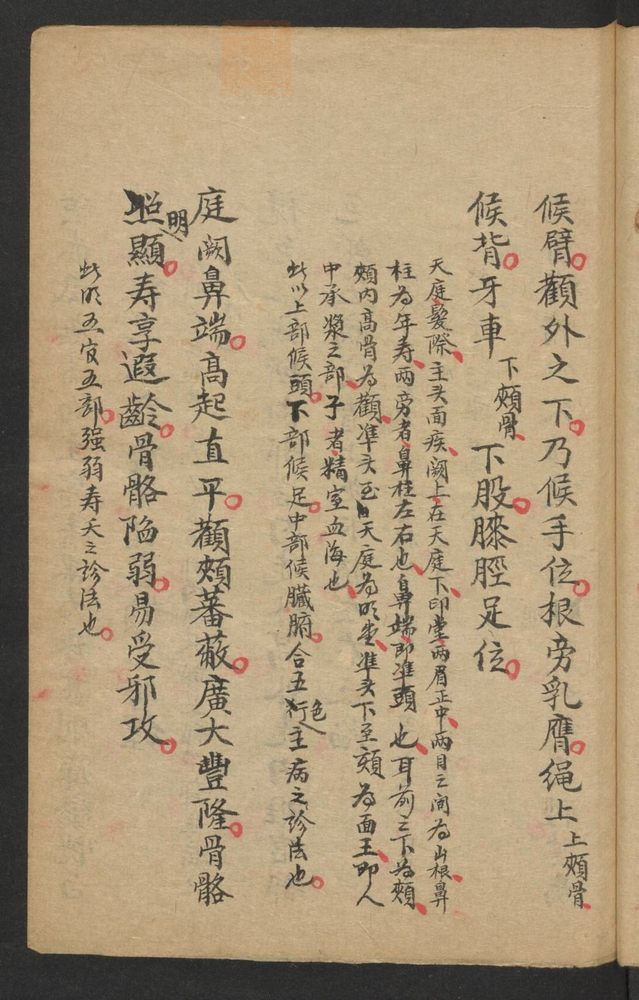 候臂。顴外之下。乃候手位。根旁乳膺。绳上上頰骨
候背。牙車下頰骨下股。膝脛足位。
天庭髮際、主头面疾、阙上在天庭下、印堂两眉正中、两目之间为山根、鼻
柱为年寿、两旁者鼻柱左右也、鼻端即準頭也、耳前之下为頰、
頰内高骨为顴、準头至天庭为明堂、準头下至頦为面王、即人
中承漿之部、子者精室血海也、
此以上部候頭。下部候足。中部候臟腑。合五色主病之診法也。
庭阙鼻端。高起直平。顴頰蕃蔽。廣大豐隆。骨骼
明顯。寿享遐齡。骨骼陷弱。易受邪攻。
此明五官五部。强弱寿夭之診法也。